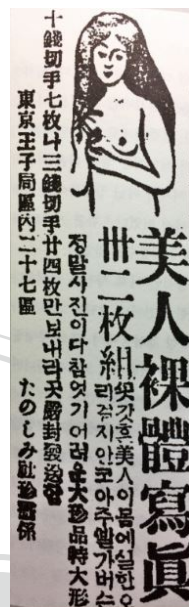 美人裸體寫眞
卅二枚組 꼿갓흔美人이몸에실한오
리걸지안코아주빨가버슨
정말사진이다참엇기어려운大珍品特大形
十錢切手七枚나三錢切手廿四枚만보내라곳嚴封發送함
東京王子局區內二十七區 たのしみ社珍寶係